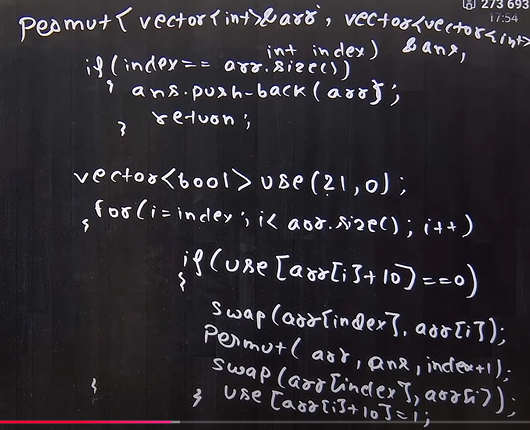 273 693
17:54
Permut( vector<int>&arr, vector<vector<int>
int index) &ans,
if(index== arr.size())
{ ans.push-back(arr);
return;
}
vector<bool> use(21,0);
for(i=index; i< arr.size(); i++)
{
if(use[arr[i]+10]==0)
{
swap(arr[index], arr[i]);
Permut( arr, ans, index+1);
swap(arr[index], arr[i]);
} use[arr[i]+10]=1;
}